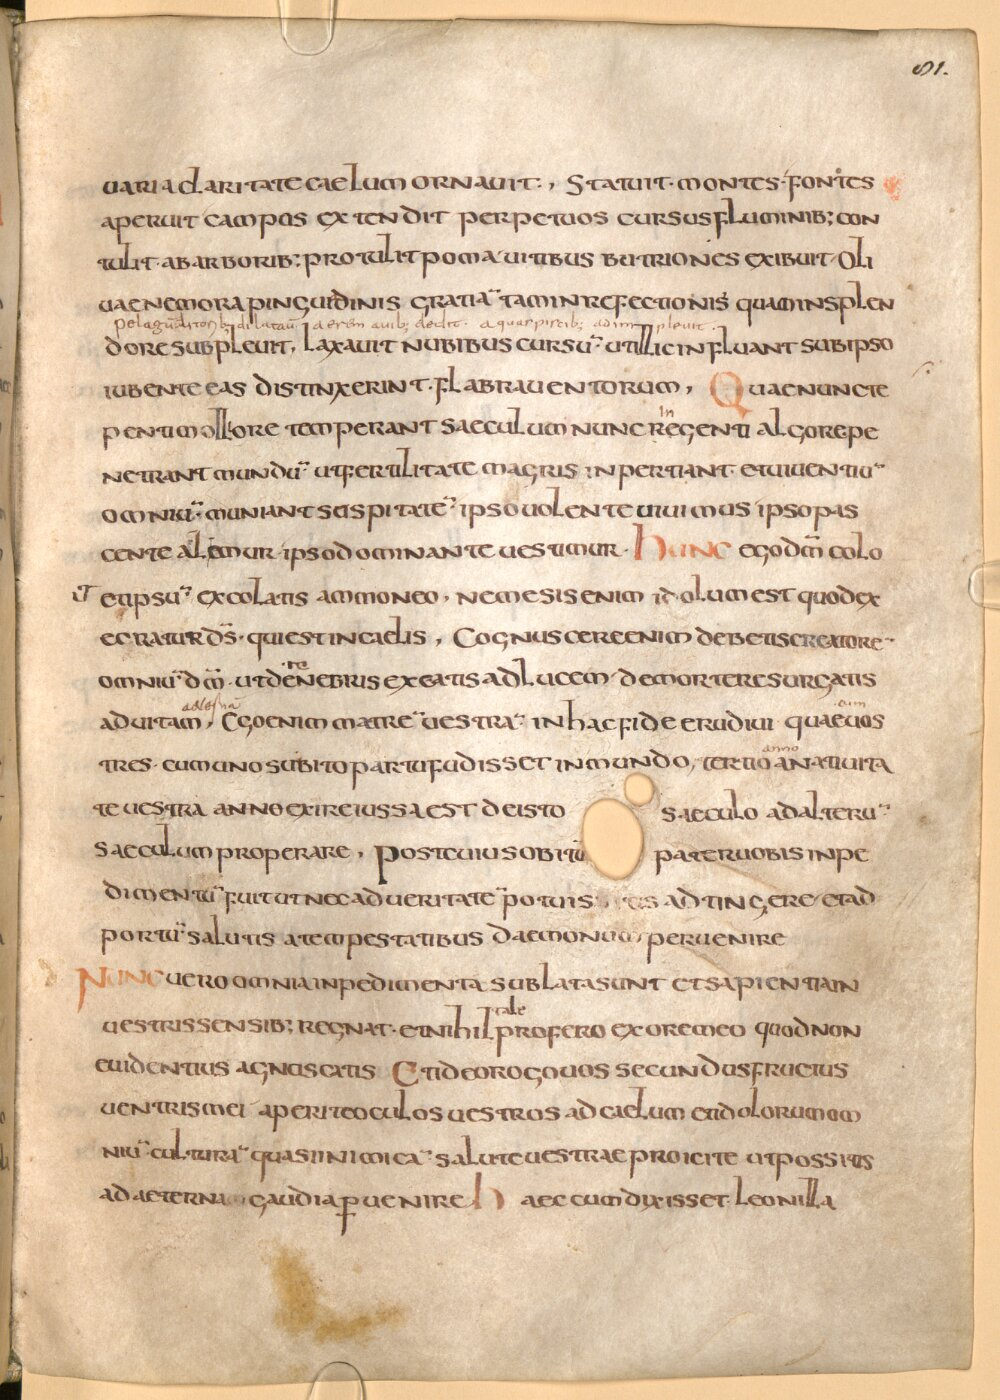 91.
uaria claritate caelum ornauit., Statuit montes. fontes
aperuit campos extendit perpetuos cursus fluminib; con
tulit. ab arborib; protulit poma uitibus butriones exibuit. Oli
uae nemora pinguidinis gratiā tam in refectionis quam in splen
dedit. aquas piscib;
dore subpleuit, laxauit nubibus cursū ut illic influant sub ipso
iubente eas distinxerint. flabra uentorum, Quae nunc te
penti mollore temperant saeculum nunc regenti algore pe
in
netrant mundū ut fertilitatem agris inpertiant. et uiuentiū
omniū muniant scispitatē ipso uolente uiuimus ipso pas
cente alemur ipso dominante uestimur. hunc ego dm̄ colo
ut et ipsū excolatis ammoneo, nemesis enim idolum est quod ex
ecratur ds̄. qui est in caelis, Cognuscere enim debetis creatorē
omniū dm̄. ut de tenebris exeatis ad lucem de morte resurgatis
ad uitam, Ego enim matrē uestrā in hac fide erudiui quae uos
cum
tres. cum uno subito partu fudisset in mundo, tertio a natiuita
anno
te uestra anno exire iussa est de isto saeculo ad alterū
saeculum properare, Post euius obitū pater uobis inpe
dimentū fuit ut nec ad ueritatē potuis es adtingere et ad
portū salutis a tempestatibus daemonum peruenire
Nunc uero omnia inpedimenta sublata sunt et sapientiam
uestris sensib; regnat. et nihil profero ex ore meo quod non
tale
euidentius agnoscatis Et ideo rogo uos secundus fructus
uentris mei aperite oculos uestros ad caelum et idolorum om
niū culturā quasi inimicā salute uestrae proicite ut possitis
ad aeterna gaudia ꝑuenire haec cum dixisset leonilla